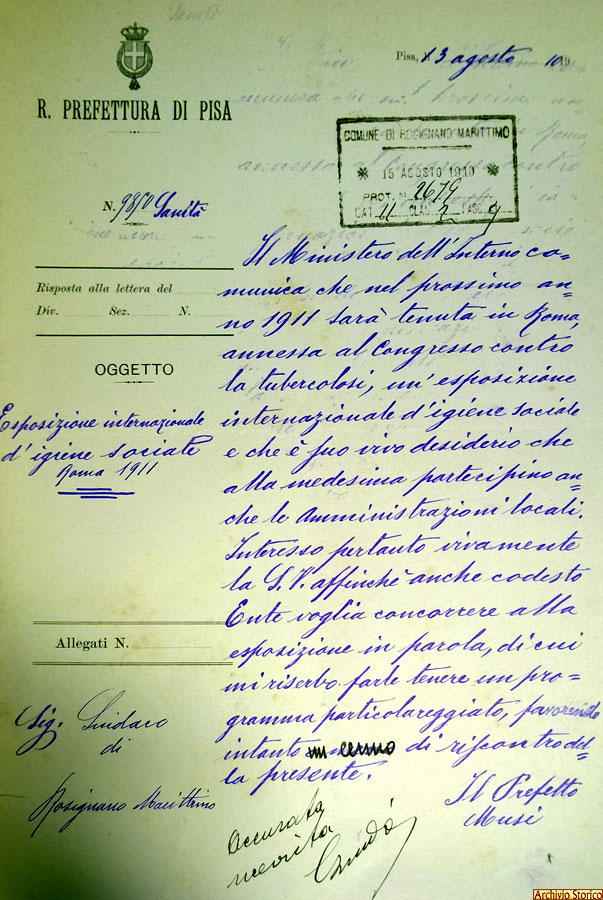 Pisa, 13 agosto 1910
R. PREFETTURA DI PISA
COMUNE DI ROSIGNANO MARITTIMO
15 AGOSTO 1910
PROT. N. 2679
CAT. 4 CLAS. 2 FASC. 9
N. 9850 Sanità
Risposta alla lettera del
Div. Sez. N.
OGGETTO
Esposizione internazionale
d'igiene sociale
Roma 1911
Allegati N.
Sig. Sindaco
di
Rosignano Marittimo
Il Ministero dell'Interno co=
munica che nel prossimo an=
no 1911 sarà tenuta in Roma,
annessa al Congresso contro
la tubercolosi, un'esposizione
internazionale d'igiene sociale
e che è suo vivo desiderio che
alla medesima partecipino an=
che le Amministrazioni locali.
Interesso pertanto vivamente
la S.V. affinchè anche codesto
Ente voglia concorrere alla
esposizione in parola, di cui
mi riserbo farle tenere un pro=
gramma particolareggiato, favorendo
intanto un cenno di riscontro del=
la presente.
Il Prefetto
Musi
Archivio Storico